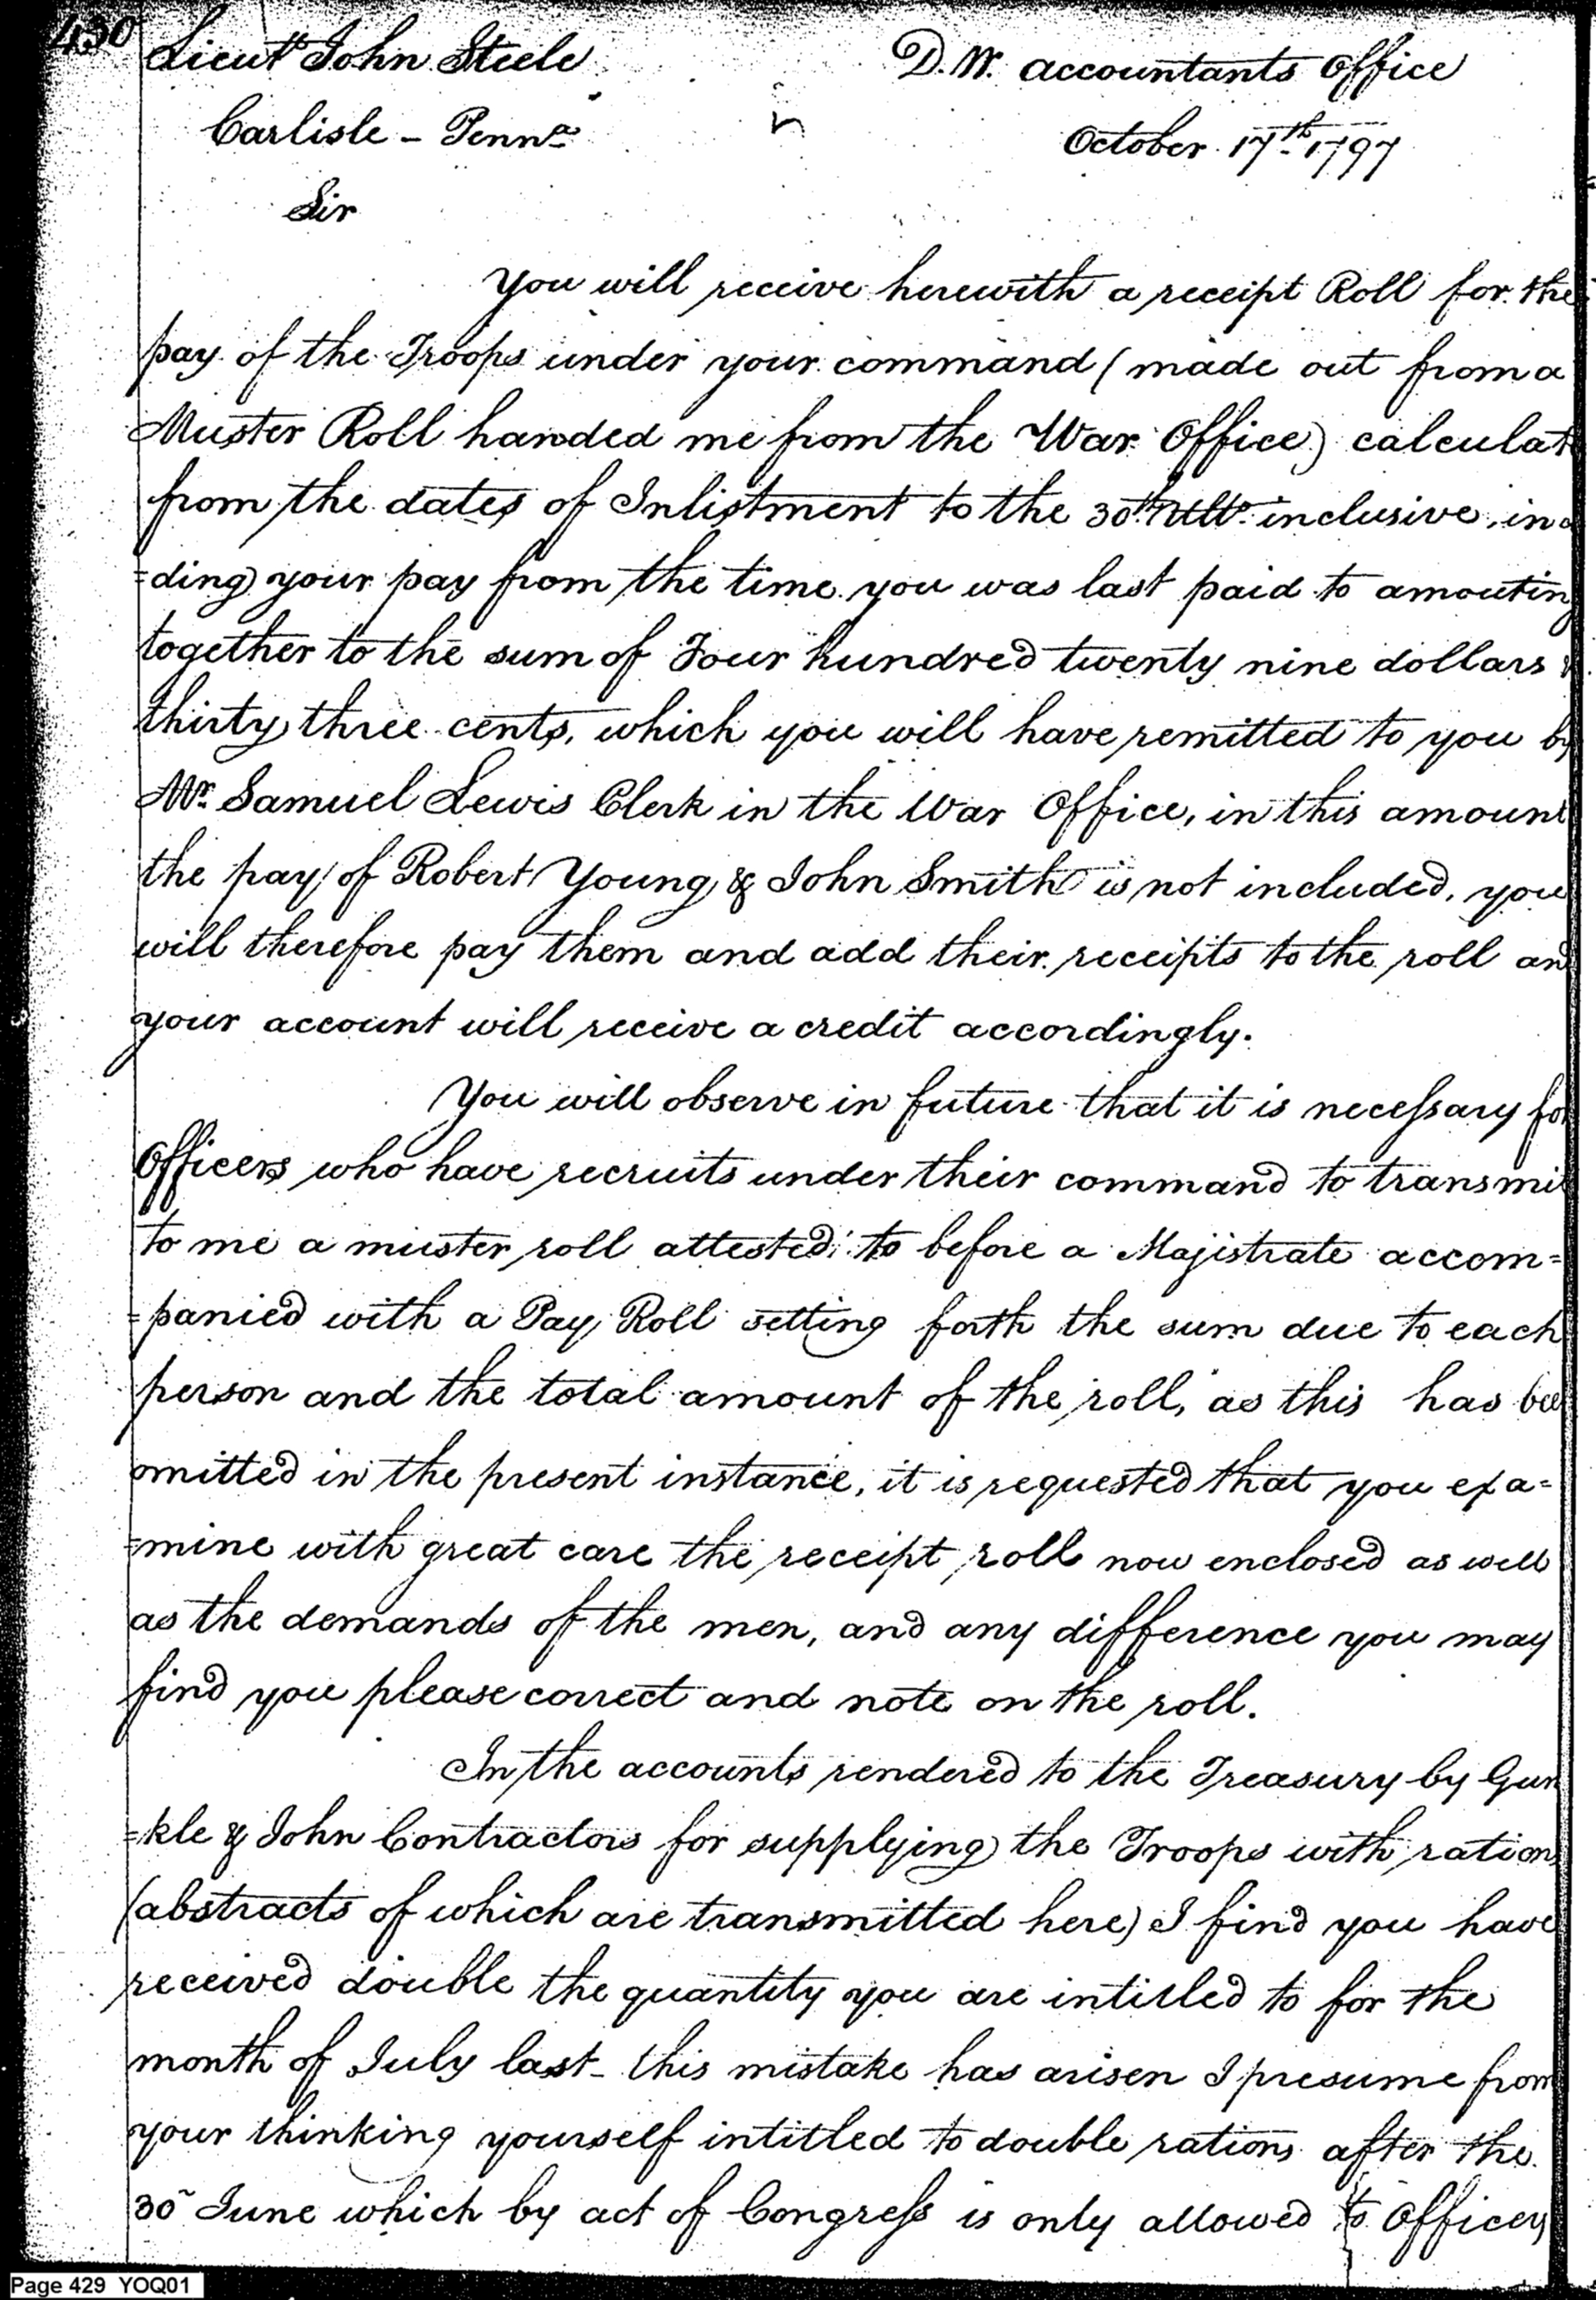 430
Lieut John Steele
D. W. accountants office
Carlisle - Penna
October 17th 1797
Sir
You will receive herewith a receipt Roll for the
pay of the Troops under your command (made out from a
Muster Roll handed me from the War Office) calculat
from the dates of Inlistment to the 30th Ulto inclusive, in
=ding your pay from the time you was last paid to amouting
together to the sum of Four hundred twenty nine dollars &
thirty three cents, which you will have remitted to you by
Mr Samuel Lewis Clerk in the War Office, in this amount
the pay of Robert Young & John Smith is not included, you
will therefore pay them and add their receipts to the roll and
your account will receive a credit accordingly.
You will observe in future that it is necessary for
Officers who have recruits under their command to transmit
to me a muster roll attested to before a Majistrate accom=
=panied with a Pay Roll setting forth the sum due to each
person and the total amount of the roll, as this has bee
omitted in the present instance, it is requested that you exa=
=mine with great care the receipt roll now enclosed as well
as the demands of the men, and any difference you may
find you please correct and note on the roll.
In the accounts rendered to the Treasury by Gun
=kle & John Contractors for supplying the Troops with rations
(abstracts of which are transmitted here) I find you have
received double the quantity you are intitled to for the
month of July last - this mistake has arisen I presume from
your thinking yourself intitled to double rations after the
30 June which by act of Congress is only allowed to Officers
Page 429 YOQ01